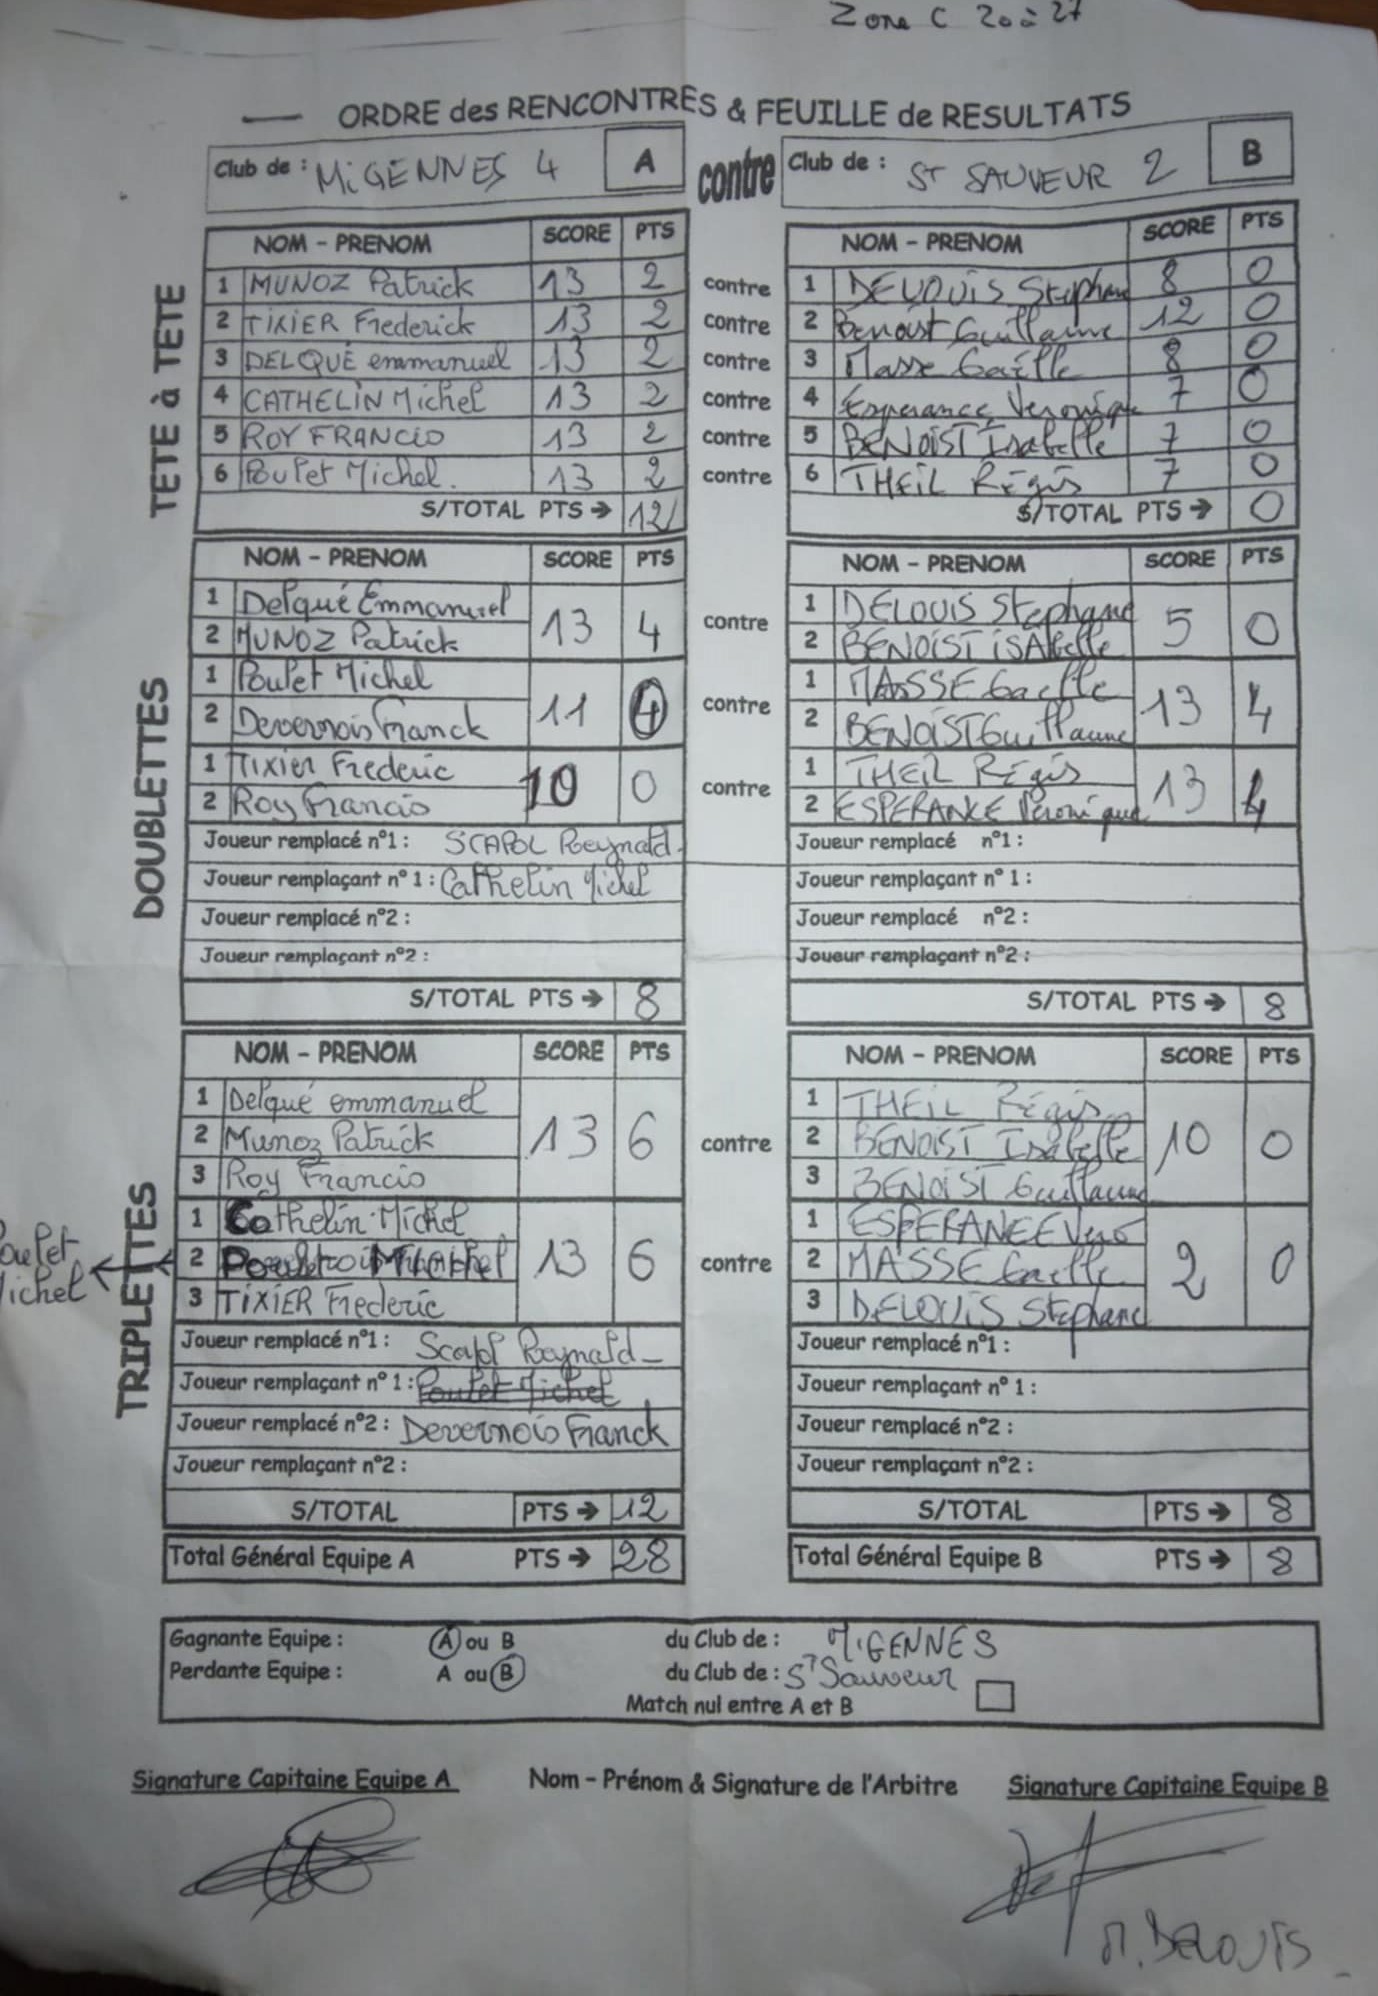 Zone C 20 à 27
ORDRE des RENCONTRES & FEUILLE de RESULTATS
Club de : MiGENNES 4 A contre Club de : ST SAUVEUR 2 B
TETE à TETE
NOM - PRENOM SCORE PTS NOM - PRENOM SCORE PTS
1 MUNOZ Patrick 13 2 contre 1 DELOUIS Stephan 8 0
2 TIXIER Frederick 13 2 contre 2 Benoist Guillaume 12 0
3 DELQUÉ emmanuel 13 2 contre 3 Masse Gaëlle 8 0
4 CATHELIN Michel 13 2 contre 4 Esperance Veronique 7 0
5 ROY FRANCiS 13 2 contre 5 BENOIST Isabelle 7 0
6 Poulet Michel. 13 2 contre 6 THEIL Régis 7 0
S/TOTAL PTS → 12 S/TOTAL PTS → 0
DOUBLETTES
NOM - PRENOM SCORE PTS NOM - PRENOM SCORE PTS
1 Delqué Emmanuel 1 DELOUIS Stephane
13 4 contre 5 0
2 MUNOZ Patrick 2 BENOIST iSAbelle
1 Poulet Michel 1 MASSE Gaelle
11 contre 13 4
2 Devernois Franck 2 BENOIST Guillaume
1 Tixier Frederic 1 THEIL Régis
10 0 contre 13 4
2 Roy Francis 2 ESPERANCE Véronique
Joueur remplacé n°1 : SCAPOL Reynald. Joueur remplacé n°1 :
Joueur remplaçant n° 1 : Cathelin Michel Joueur remplaçant n° 1 :
Joueur remplacé n°2 : Joueur remplacé n°2 :
Joueur remplaçant n°2 : Joueur remplaçant n°2 :
S/TOTAL PTS → 8 S/TOTAL PTS → 8
TRIPLETTES
NOM - PRENOM SCORE PTS NOM - PRENOM SCORE PTS
1 Delqué emmanuel 1 THEIL Régis
2 Munoz Patrick 13 6 contre 2 BENOIST Isabelle 10 0
3 Roy Francis 3 BENOIST Guillaume
1 Cathelin Michel 1 ESPERANCE Vero
Poulet Michel 2 Michel 13 6 contre 2 MASSE Gaelle 2 0
3 TIXIER Frederic 3 DELOUIS Stephane
Joueur remplacé n°1 : Scapol Reynald Joueur remplacé n°1 :
Joueur remplaçant n° 1 : Poulet Michel Joueur remplaçant n° 1 :
Joueur remplacé n°2 : Devernois Franck Joueur remplacé n°2 :
Joueur remplaçant n°2 : Joueur remplaçant n°2 :
S/TOTAL PTS → 12 S/TOTAL PTS → 8
Total Général Equipe A PTS → 28 Total Général Equipe B PTS → 8
Gagnante Equipe : A ou B du Club de : MiGENNES
Perdante Equipe : A ou B du Club de : ST Sauveur
Match nul entre A et B
Signature Capitaine Equipe A Nom - Prénom & Signature de l'Arbitre Signature Capitaine Equipe B
M. DELOUIS